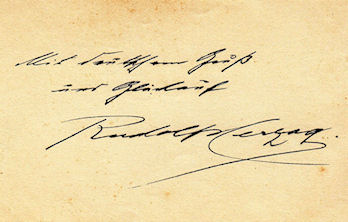 Mit deutschem Gruß
und Glückauf
Rudolf Herzog.